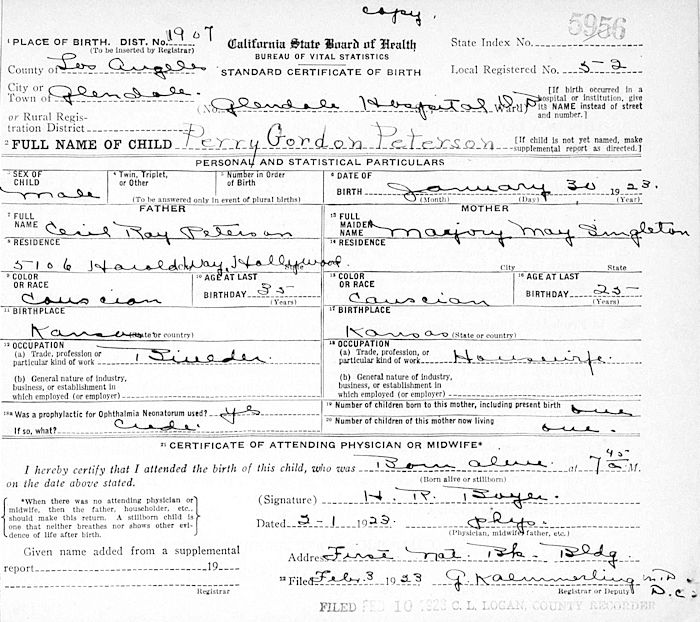 copy.
5956
¹ PLACE OF BIRTH. DIST. No. 1907
(To be inserted by Registrar)
California State Board of Health
BUREAU OF VITAL STATISTICS
STANDARD CERTIFICATE OF BIRTH
State Index No.
Local Registered No. 52
County of Los Angeles
City or
Town of Glendale.
or Rural Regis-
tration District
(No. Glendale Hospital Ward)
[If birth occurred in a
hospital or institution, give
its NAME instead of street
and number.]
² FULL NAME OF CHILD Perry Gordon Peterson
[If child is not yet named, make
supplemental report as directed.]
PERSONAL AND STATISTICAL PARTICULARS
³ SEX OF
CHILD Male
⁴ Twin, Triplet,
or Other
⁵ Number in Order
of Birth
(To be answered only in event of plural births)
⁶ DATE OF
BIRTH January 30 1923.
(Month) (Day) (Year)
FATHER
⁷ FULL
NAME Cecil Ray Peterson
⁸ RESIDENCE
5106 Harold Way, Hollywood.
State
⁹ COLOR
OR RACE
Causcian
¹⁰ AGE AT LAST
BIRTHDAY 35
(Years)
¹¹ BIRTHPLACE
Kansas (State or country)
¹² OCCUPATION
(a) Trade, profession or
particular kind of work
(b) General nature of industry,
business, or establishment in
which employed (or employer)
MOTHER
¹³ FULL
MAIDEN
NAME Marjory May Singleton
¹⁴ RESIDENCE
City State
¹⁵ COLOR
OR RACE
Causcian
¹⁶ AGE AT LAST
BIRTHDAY 25
(Years)
¹⁷ BIRTHPLACE
Kansas (State or country)
¹⁸ OCCUPATION
(a) Trade, profession or
particular kind of work Housewife.
(b) General nature of industry,
business, or establishment in
which employed (or employer)
¹⁸ᵃ Was a prophylactic for Ophthalmia Neonatorum used? yes
If so, what? Crede.
¹⁹ Number of children born to this mother, including present birth one
²⁰ Number of children of this mother now living one.
²¹ CERTIFICATE OF ATTENDING PHYSICIAN OR MIDWIFE*
I hereby certify that I attended the birth of this child, who was Born alive. at 7 45 a M.
(Born alive or stillborn)
on the date above stated.
*When there was no attending physician or
midwife, then the father, householder, etc.,
should make this return. A stillborn child is
one that neither breathes nor shows other evi-
dence of life after birth.
(Signature) H. R. Boyer.
Dated 2-1 1923. phys.
(Physician, midwife, father, etc.)
Given name added from a supplemental
report 19
Registrar
Address First Nat. Bk. Bldg.
²² Filed Feb. 3 1923 G. Kaemmerling M.D.
D.C.
Registrar or Deputy
FILED FEB 10 1923 C. L. LOGAN, COUNTY RECORDER